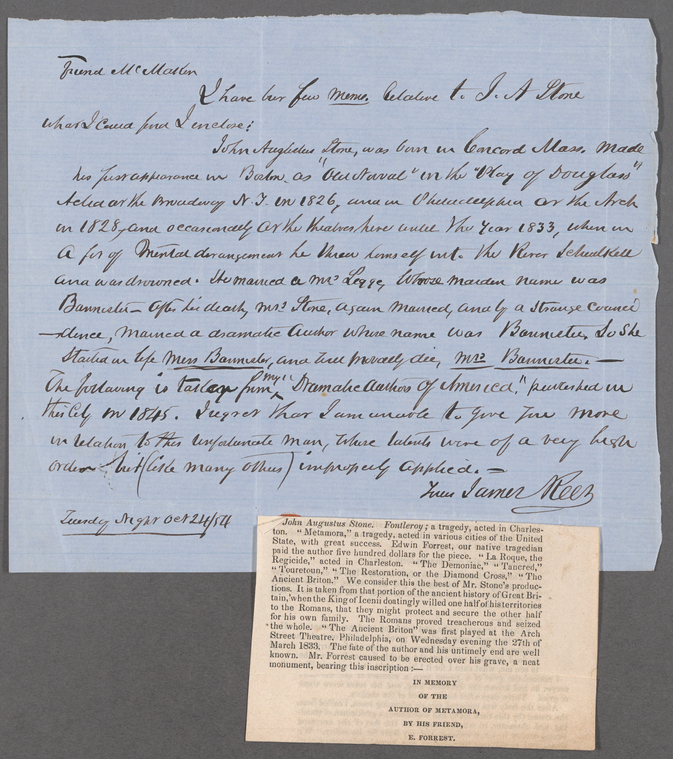 Friend McMakin
I have but few memo. Relative to J. A Stone
what I could find I enclose:
John Augustus Stone, was born in Concord Mass. Made
his first appearance in Boston as "Old Norval" in the "Play of Douglass"
Acted at the Broadway N.Y. in 1826, and in Philadelphia at the Arch
in 1828, and occasionally at the theatres here until the year 1833, when in
a fit of mental derangement he threw himself into the River Schuylkill
and was drowned. He married a Mrs Legge, whose maiden name was
Bannister — After his death, Mrs Stone, again married, and by a strange coinci
-dence, married a dramatic author whose name was Bannister, So She
Started in life Miss Bannister, and will probably die, Mrs Bannister. —
The following is taken from my "Dramatic Authors of America," published in
this City in 1845. I regret that I am unable to give you more
in relation to this unfortunate man, whose talents were of a very high
order but (like many others) improperly applied. —
Yours James Rees
Tuesday Night Oct 24/54
John Augustus Stone. Fontleroy; a tragedy, acted in Charles-
ton. "Metamora," a tragedy, acted in various cities of the United
State, with great success. Edwin Forrest, our native tragedian
paid the author five hundred dollars for the piece. "La Roque, the
Regicide," acted in Charleston. "The Demoniac," "Tancred,"
"Touretoun," "The Restoration, or the Diamond Cross," "The
Ancient Briton." We consider this the best of Mr. Stone's produc-
tions. It is taken from that portion of the ancient history of Great Bri-
tain, when the King of Icenii doatingly willed one half of his territories
to the Romans, that they might protect and secure the other half
for his own family. The Romans proved treacherous and seized
the whole. "The Ancient Briton" was first played at the Arch
Street Theatre, Philadelphia, on Wednesday evening the 27th of
March 1833. The fate of the author and his untimely end are well
known. Mr. Forrest caused to be erected over his grave, a neat
monument, bearing this inscription:—
IN MEMORY
OF THE
AUTHOR OF METAMORA,
BY HIS FRIEND,
E. FORREST.